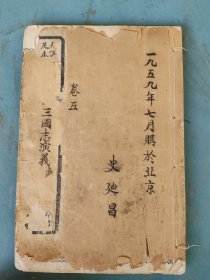 一九五九年七月購於北京
史廸昌
卷五
三國志演義
足本